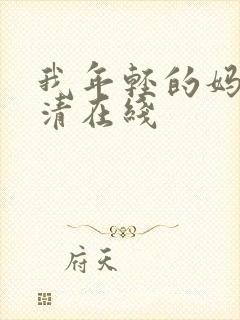 我年轻的妈
清在线
府天